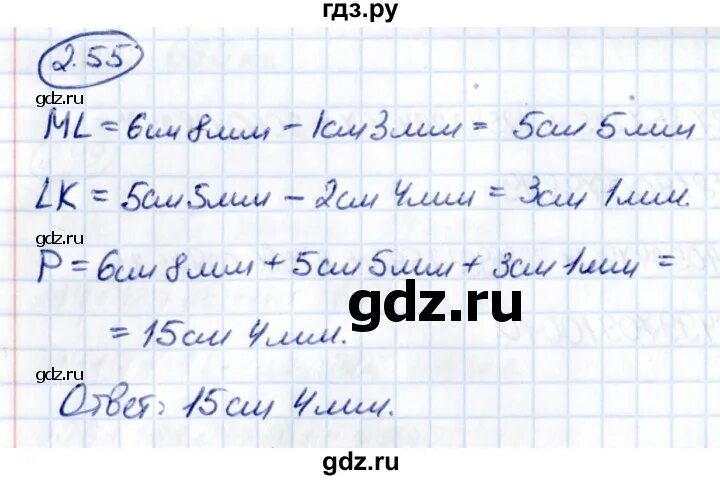 гдз.ру
2.55
gdz.ru
gdz.ru
ML = 6см 8мм - 1см 3мм = 5см 5мм
LK = 5см 5мм - 2см 4мм = 3см 1мм.
gdz.ru
P = 6см 8мм + 5см 5мм + 3см 1мм =
gdz.ru
= 15см 4мм.
gdz.ru
gdz.ru
Ответ: 15см 4мм.
gdz.ru